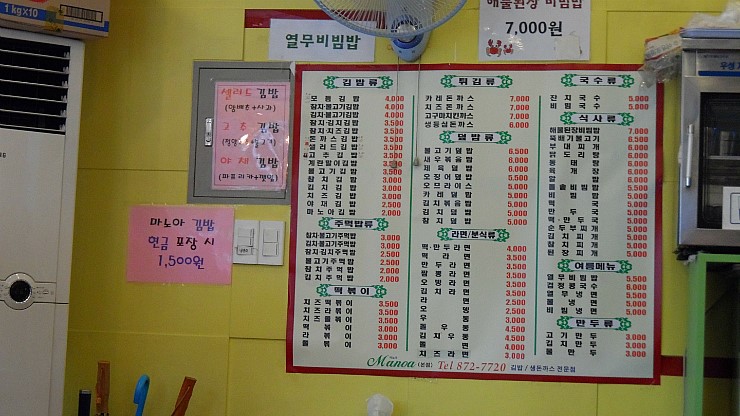 1 kg×10
해물된장 비빔밥
7,000원
열무비빔밥
샐러드 김밥
(양배추+사과)
고추 김밥
야채 김밥
(파프리카+깻잎)
마노아 김밥
현금 포장 시
1,500원
김밥류
모듬김밥 4,000
참치·불고기김밥 4,000
김치·불고기김밥 4,000
참치·김치김밥 3,500
참치·치즈김밥 3,500
돈까스김밥 3,500
샐러드김밥 3,500
고추김밥 3,500
계란말이김밥 3,500
불고기김밥 3,500
참치김밥 3,000
김치김밥 3,000
치즈김밥 3,000
야채김밥 2,500
마노아김밥 2,000
주먹밥류
참치·불고기주먹밥 3,000
김치·불고기주먹밥 3,000
참치·김치주먹밥 2,500
불고기주먹밥 2,500
참치주먹밥 2,000
김치주먹밥 2,000
떡볶이
치즈떡볶이 3,500
치즈라볶이 3,500
치즈쫄볶이 3,500
떡볶이 3,000
라볶이 3,000
쫄볶이 3,000
튀김류
카레돈까스 7,000
치즈돈까스 7,000
고구마치킨까스 7,000
생등심돈까스 6,000
덮밥류
불고기덮밥 6,500
새우볶음밥 6,000
제육덮밥 6,000
오징어덮밥 5,500
오므라이스 5,000
카레덮밥 5,000
김치볶음밥 5,000
김치덮밥 5,000
참치덮밥 5,000
라면/분식류
떡·만두라면 4,000
떡라면 3,500
만두라면 3,500
짬뽕라면 3,500
오뎅라면 3,500
김치라면 3,500
라면 3,000
오뎅 3,000
우동 4,000
돌우동 4,500
김치우동 4,500
쫄면 4,500
치즈라면 3,500
국수류
잔치국수 5,000
비빔국수 5,000
식사류
해물된장비빔밥 7,000
뚝배기불고기 6,500
부대찌개 6,000
닭도리탕 6,000
동태탕 6,000
육개장 6,000
돌솥비빔밥 5,500
떡국 5,000
만두국 5,000
떡·만두국 5,000
순두부찌개 5,000
김치찌개 5,000
참치찌개 5,000
된장찌개 5,000
여름메뉴
열무비빔밥 5,500
검정콩국수 6,000
열무냉면 5,500
물냉면 5,000
비빔냉면 5,000
만두류
고기만두 3,000
김치만두 3,000
물만두 3,000
Manoa (본점) Tel 872-7720 김밥 / 생돈까스 전문점